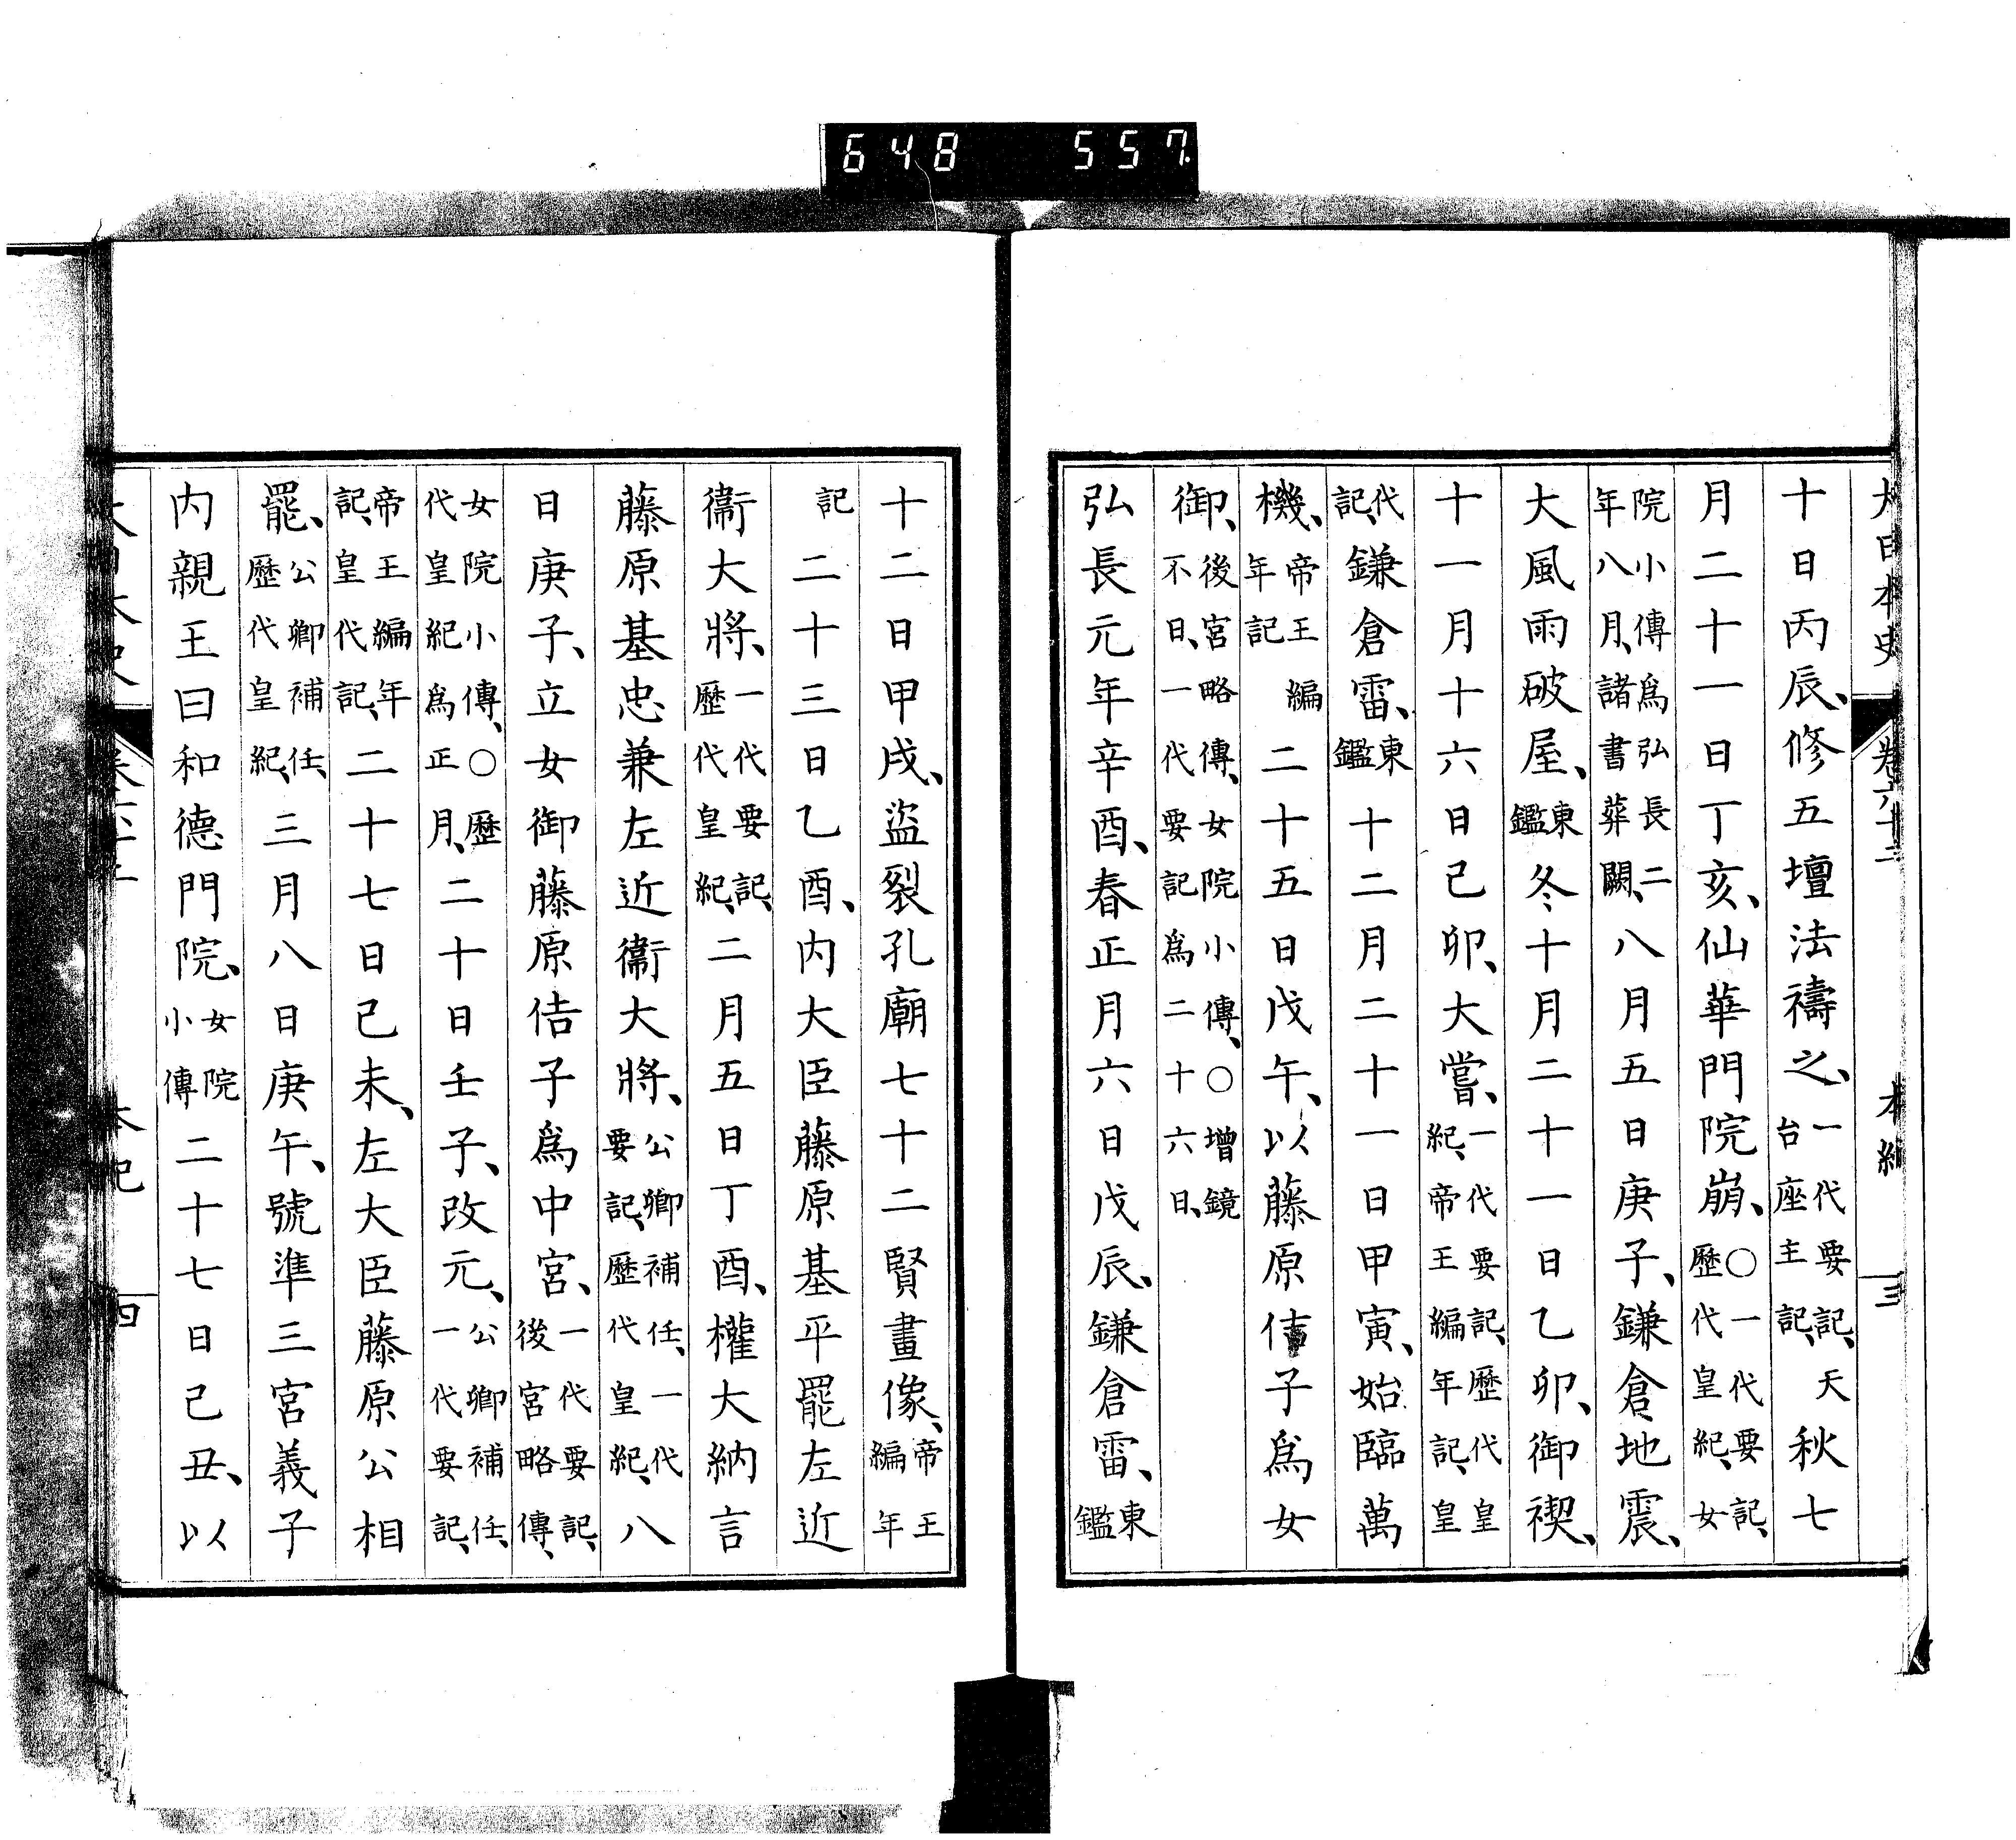 648 557
大日本史 卷六十二 本紀 三
十日丙辰、修五壇法禱之、一代要記、天台座主記、秋七
月二十一日丁亥、仙華門院崩、〇一代要記、歷代皇紀、女
院小傳爲弘長二年八月、諸書葬闕、八月五日庚子、鎌倉地震、
大風雨破屋、東鑑冬十月二十一日乙卯、御禊、
十一月十六日己卯、大嘗、一代要記、歷代皇紀、帝王編年記、皇
代記、鎌倉雷、東鑑十二月二十一日甲寅、始臨萬
機、帝王編年記二十五日戊午、以藤原佶子爲女
御、後宮略傳、女院小傳、〇增鏡不日、一代要記爲二十六日、
弘長元年辛酉、春正月六日戊辰、鎌倉雷、東鑑
十二日甲戌、盜裂孔廟七十二賢畫像、帝王編年
記二十三日乙酉、内大臣藤原基平罷左近
衞大將、一代要記、歷代皇紀、二月五日丁酉、權大納言
藤原基忠兼左近衞大將、公卿補任、一代要記、歷代皇紀、八
日庚子、立女御藤原佶子爲中宮、一代要記、後宮略傳、
女院小傳、〇歷代皇紀爲正月、二十日壬子、改元、公卿補任、一代要記、
帝王編年記、皇代記、二十七日己未、左大臣藤原公相
罷、公卿補任、歷代皇紀、三月八日庚午、號準三宮義子
内親王曰和德門院、女院小傳二十七日己丑、以
本紀 四